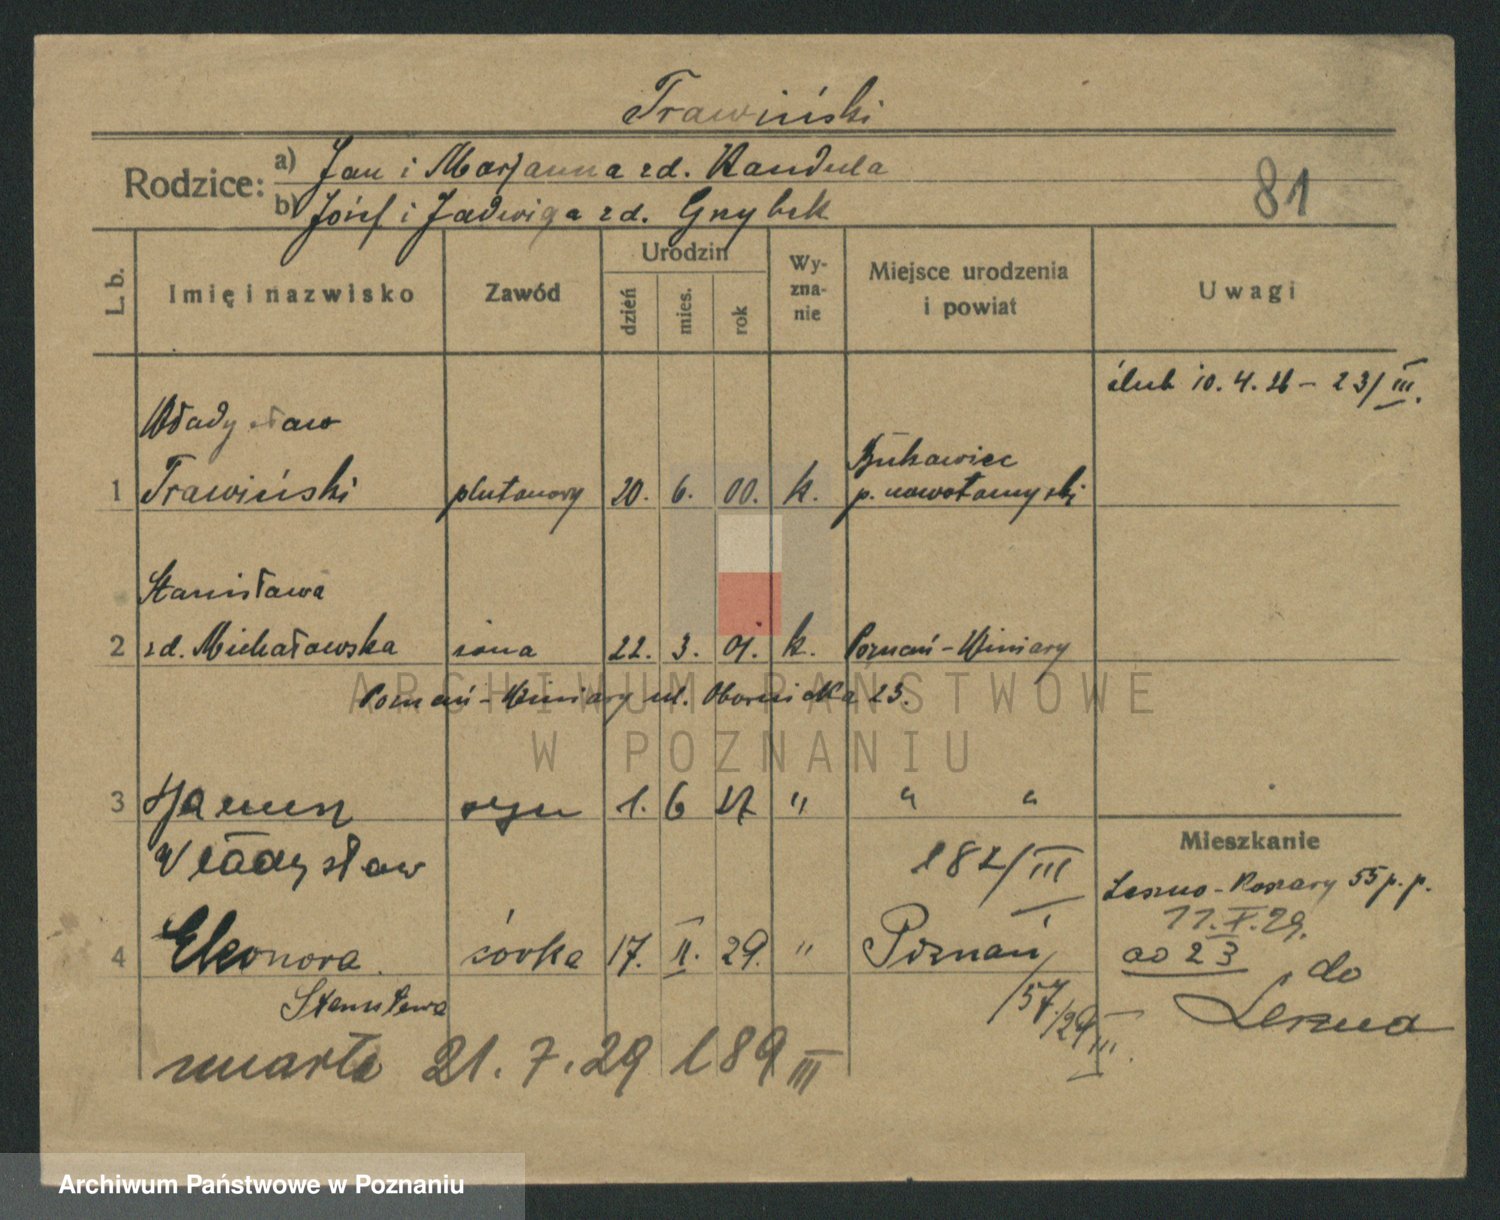 Trawiński
Rodzice: a) Jan i Marjanna zd. Kandula
b) Józef i Jadwiga zd. Grzybek
81
L. b. Imię i nazwisko Zawód Urodzin dzień mies. rok Wy-zna-nie Miejsce urodzenia i powiat Uwagi
ślub 10. 4. 26 - 23/III.
Władysław
1 Trawiński plutonowy 20. 6. 00. k. Bukowiec p. nowotomyski
Stanisława
2 zd. Michałowska żona 22. 3. 01. k. Poznań-Winiary
Poznań-Winiary ul. Obornicka 23.
ARCHIWUM PAŃSTWOWE
W POZNANIU
3 Janusz syn 1. 6 27 " " "
Władysław 182/III
Mieszkanie
Leszno-Koszary 55 p. p.
11. X. 29.
4 Eleonora córka 17. II. 29. " Poznań
Stanisława 57/29 III.
do
Leszna
umarła 21. 7. 29 189 III
Archiwum Państwowe w Poznaniu